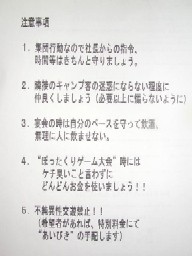 注意事項
1. 集団行動なので社長からの指令、
時間等はきちんと守りましょう。
2. 隣接のキャンプ客の迷惑にならない程度に
仲良くしましょう(必要以上に煽らないように)
3. 宴会の時は自分のペースを守って飲酒。
無理に人に飲ませない。
4. “ぼったくりゲーム大会”時には
ケチ臭いこと言わずに
どんどんお金を使いましょう!!
6. 不純異性交遊禁止!!
(希望者があれば、特別料金にて
“あいびき”の手配します)